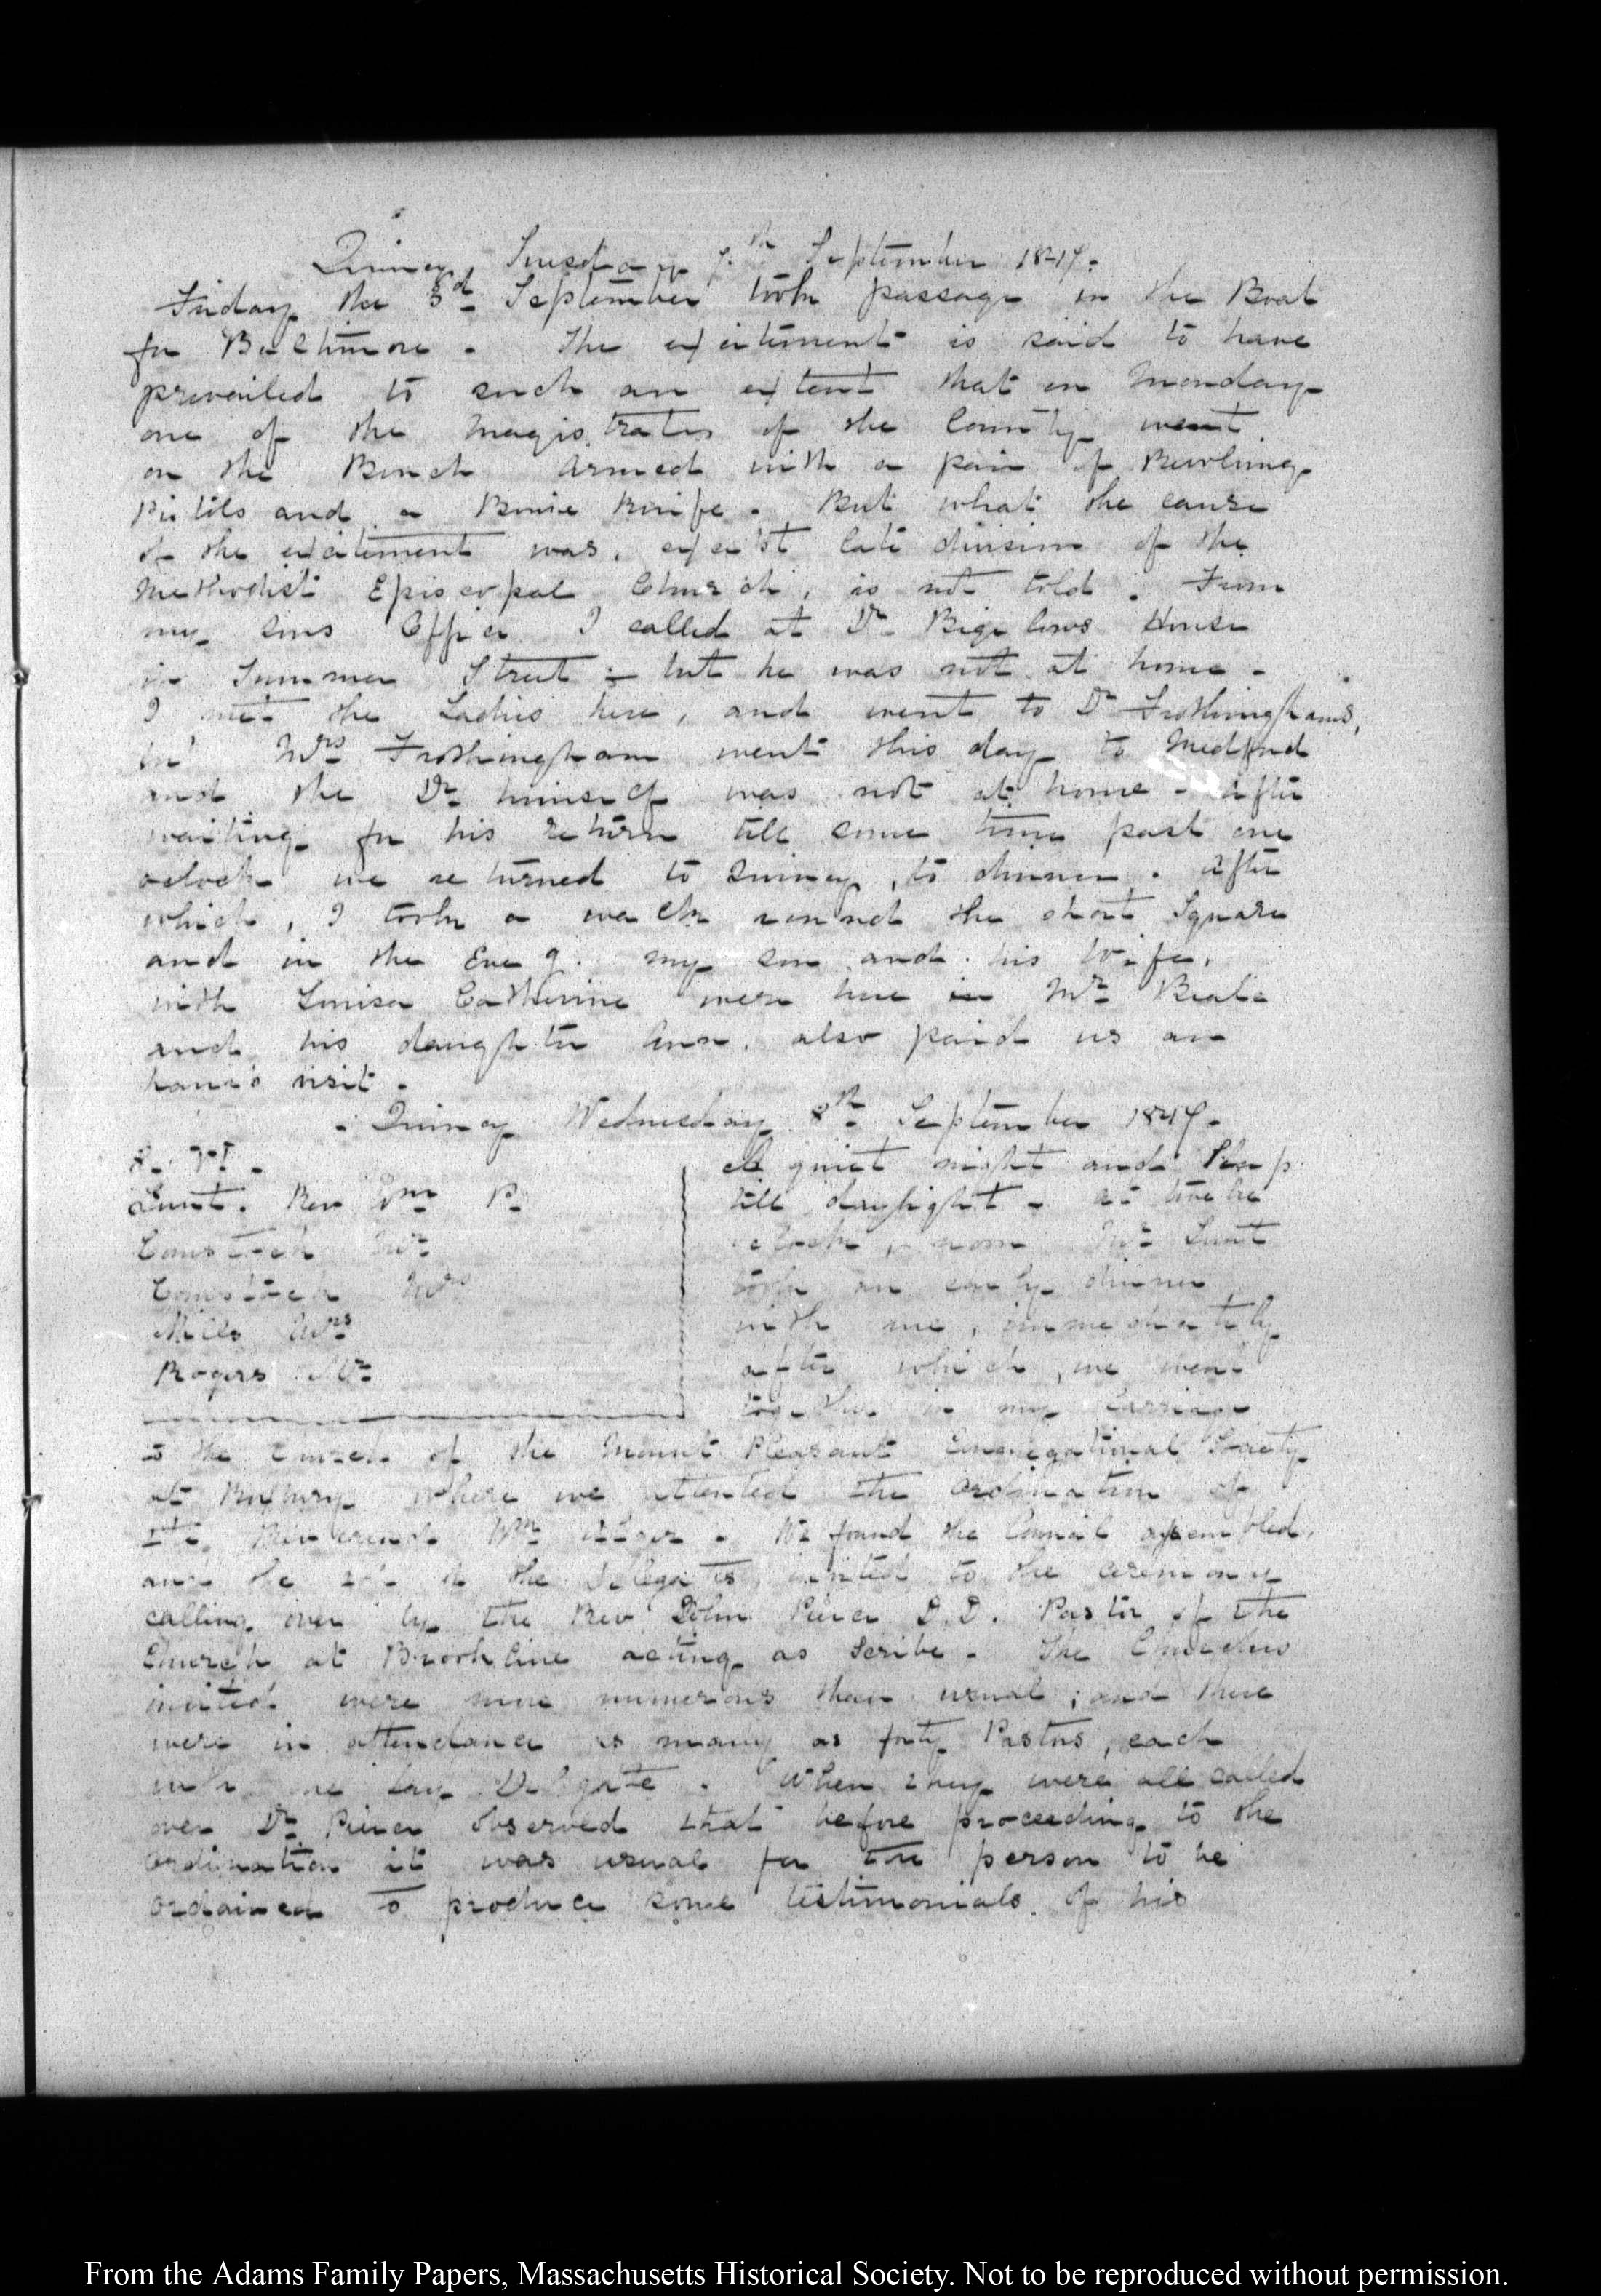 Quincy, Tuesday 7.th September 1847.
Friday the 3d September took passage in the Boat
for Baltimore. The excitement is said to have
prevailed to such an extent that on Monday
one of the Magistrates of the County went
on the Bench armed with a pair of Revolving
Pistols and a Bowie Knife. But what the cause
of the excitement was, except late division of the
Methodist Episcopal Church, is not told. From
my sons Office I called at Dr. Bigelows House
in Summer Street but he was not at home.
I met the Ladies here, and went to Dr Frothinghams,
Mrs Frothingham went this day to Medford
and the Dr himself was not at home. After
waiting for his return till some time past one
o'clock we returned to Quincy, to dinner. After
which, I took a walk round the short Square
and in the Eveg. my son and his Wife,
with Louisa Catherine were here Mr Beale
and his daughter Ann, also paid us an
hour's visit.
Quincy Wednesday 8th September 1847.
Lunt. Rev Wm P.
Comstock Mr
Comstock Mrs
Miles Mrs
Rogers Mr
A quiet night and Sleep
till daylight. At twelve
o'clock, noon Mr Lunt
took an early dinner
with me, immediately
after which, we went
together in my Carriage
to the Church of the Mount Pleasant Congregational Society
at Roxbury where we attended the ordination of
the Reverend Wm Alger. We found the Council assembled,
and the of the Delegates invited to the ceremony
calling over by the Rev John Pierce D.D. Pastor of the
Church at Brookline acting as Scribe. The Churches
invited were more numerous than usual; and there
were in attendance as many as forty Pastors, each
with one lay Delegate. When they were all called
over Dr. Pierce observed that before proceeding to the
ordination it was usual for the person to be
ordained to produce some testimonials of his
From the Adams Family Papers, Massachusetts Historical Society. Not to be reproduced without permission.